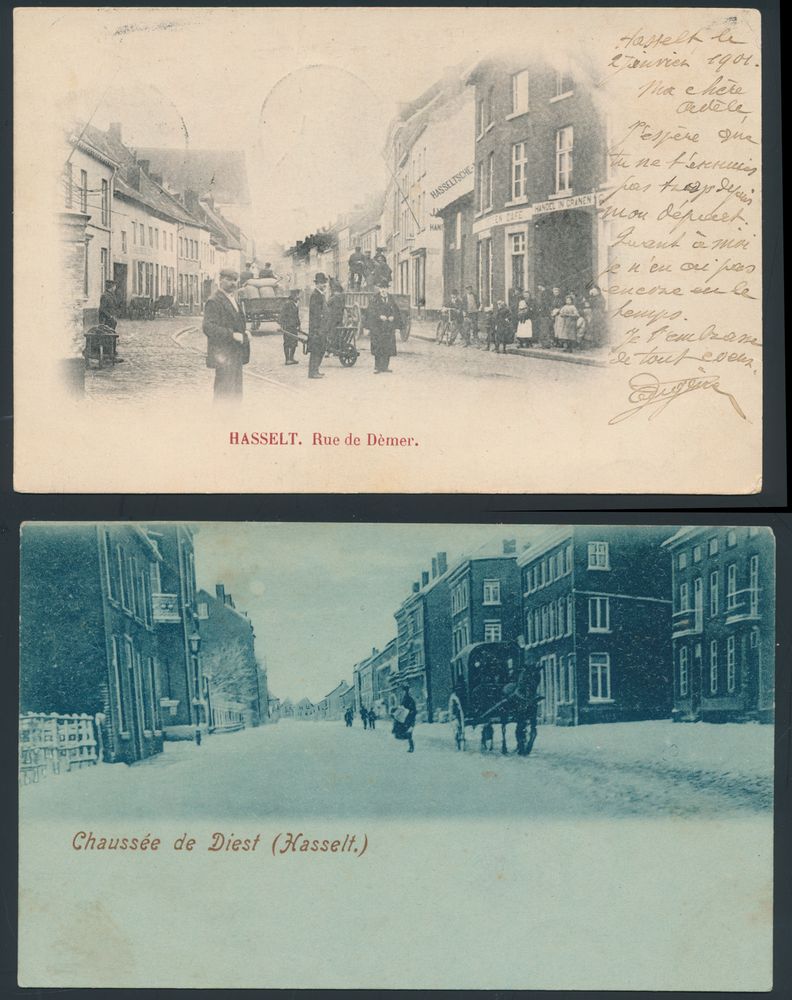 Hasselt le
2 Janvier 1901.
Ma chère
Adèle
J'espère que
tu ne t'ennuies
pas trop depuis
mon départ.
Quant à moi
je n'en ai pas
encore eu le
temps.
Je t'embrasse
de tout coeur.
Eugène
HASSELTSCHE
HAN
EN CAFE HANDEL IN GRANEN
HASSELT. Rue de Dèmer.
Chaussée de Diest (Hasselt.)